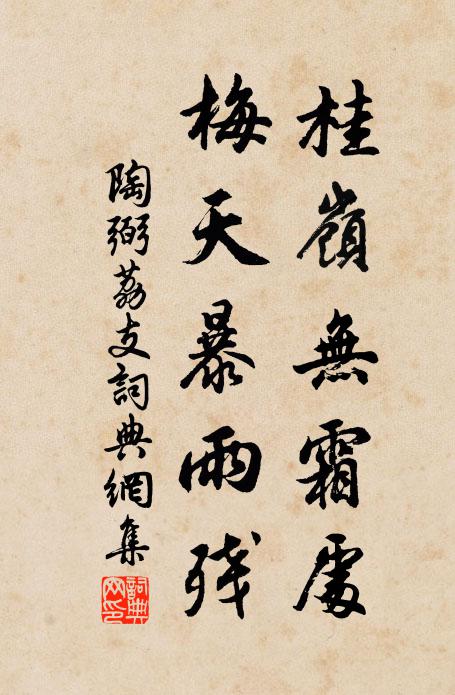 桂嶺無霜處
梅天暴雨残
陶弼荔支詞典網集
詞典网印